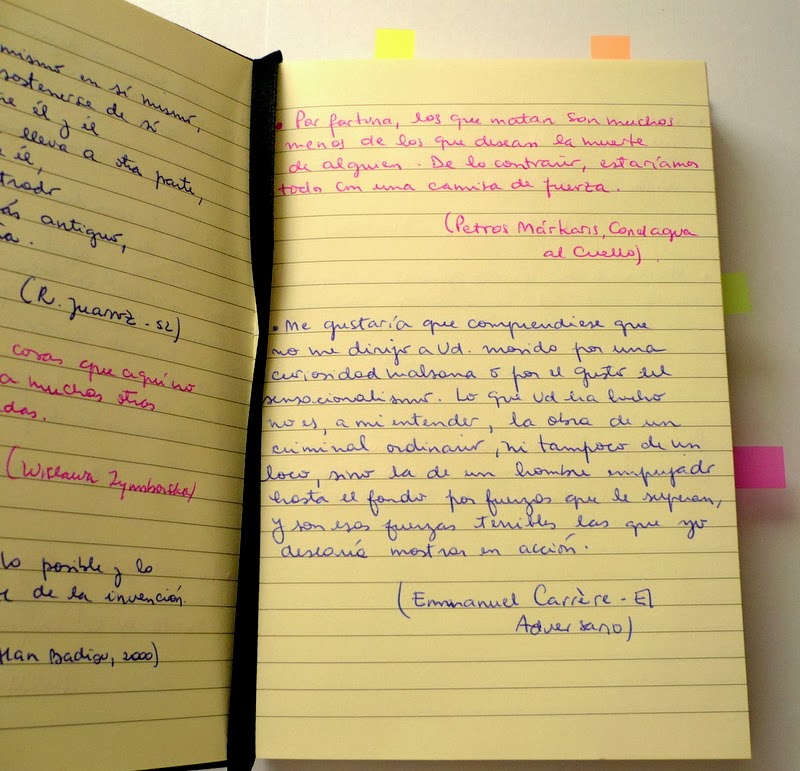 mismo en sí mismo,
sostenerse de sí
él y él
lleva a otra parte,
e él,
trado
ás antiguo,
ia.
(R. Juarroz - 52)
cosas que aquí no
a muchas otras
das.
(Wislawa Zymborska)
lo posible y lo
de la invención.
Badiou, 2000)
• Por fortuna, los que matan son muchos
menos de los que desean la muerte
de alguien. De lo contrario, estaríamos
todo con una camisa de fuerza.
(Petros Márkaris, Con el agua
al Cuello)
• Me gustaría que comprendiese que
no me dirijo a Ud. movido por una
curiosidad malsana o por el gusto del
sensacionalismo. Lo que Ud ha hecho
no es, a mi entender, la obra de un
criminal ordinario, ni tampoco de un
loco, sino la de un hombre empujado
hasta el fondo por fuerzas que le superan,
y son esas fuerzas terribles las que yo
desearía mostrar en acción.
(Emmanuel Carrère - El
Adversario)